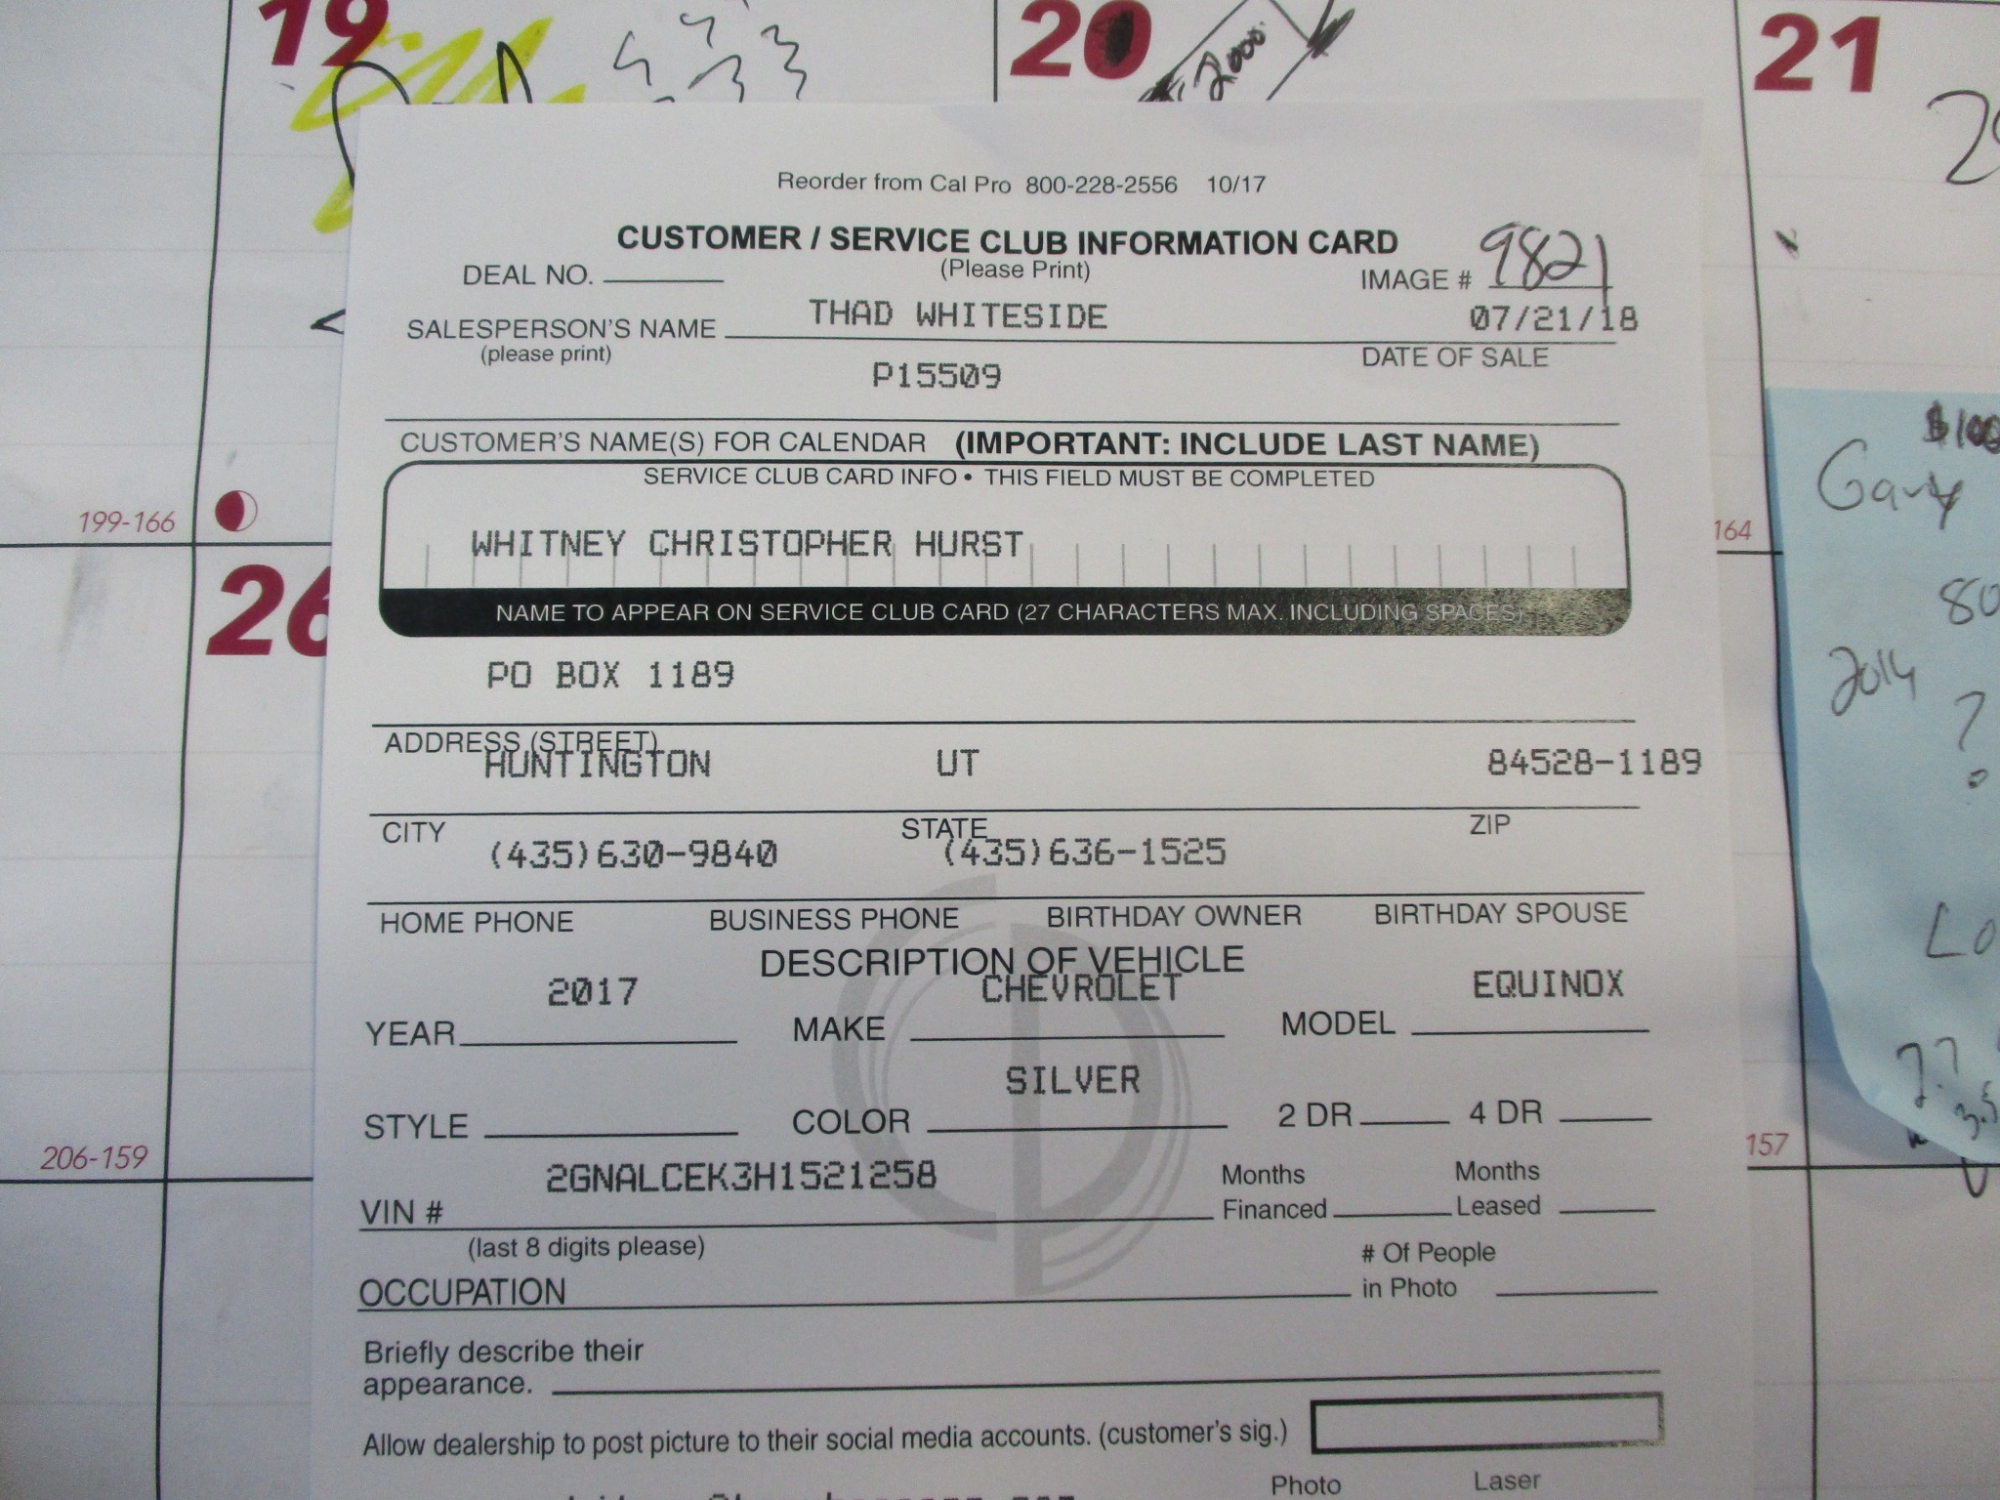 19
20
21
2000
Reorder from Cal Pro 800-228-2556 10/17
CUSTOMER / SERVICE CLUB INFORMATION CARD
(Please Print)
DEAL NO.
IMAGE # 9821
THAD WHITESIDE
07/21/18
SALESPERSON'S NAME
(please print)
DATE OF SALE
P15509
CUSTOMER'S NAME(S) FOR CALENDAR (IMPORTANT: INCLUDE LAST NAME)
SERVICE CLUB CARD INFO • THIS FIELD MUST BE COMPLETED
WHITNEY CHRISTOPHER HURST
NAME TO APPEAR ON SERVICE CLUB CARD (27 CHARACTERS MAX. INCLUDING SPACES)
PO BOX 1189
ADDRESS (STREET)
HUNTINGTON UT 84528-1189
CITY STATE ZIP
(435)630-9840 (435)636-1525
HOME PHONE BUSINESS PHONE BIRTHDAY OWNER BIRTHDAY SPOUSE
DESCRIPTION OF VEHICLE
2017 CHEVROLET EQUINOX
YEAR MAKE MODEL
SILVER
STYLE COLOR 2 DR 4 DR
2GNALCEK3H1521258
VIN #
(last 8 digits please)
Months Financed
Months Leased
OCCUPATION
# Of People in Photo
Briefly describe their
appearance.
Allow dealership to post picture to their social media accounts. (customer's sig.)
Photo Laser
199-166
26
206-159
164
157
$100
Gary
80
2014
?
Lo